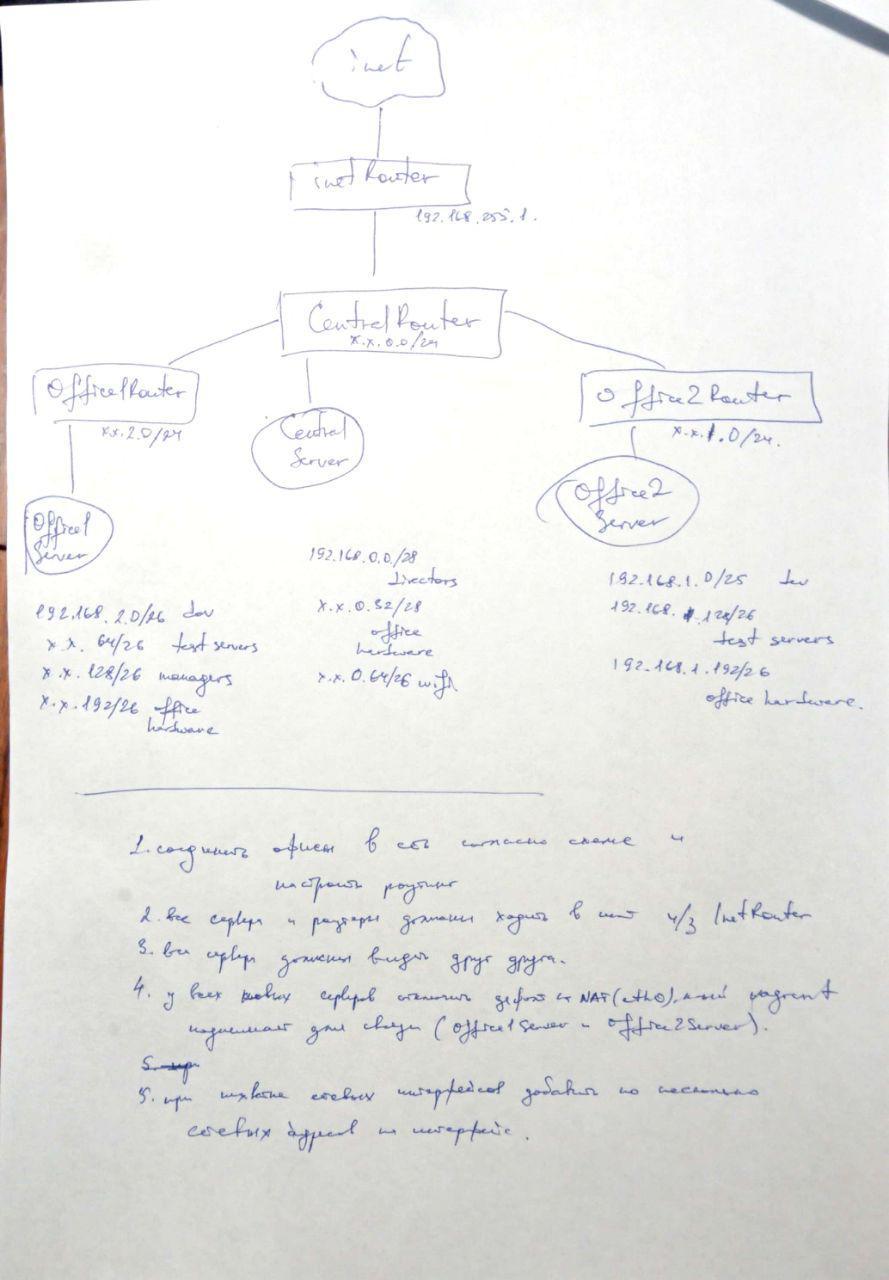 inet
inetRouter
192.168.255.1.
CentralRouter
x.x.0.0/24
Office1Router
x.x.2.0/24
Central
Server
Office2Router
x.x.1.0/24.
Office1
Server
Office2
Server
192.168.2.0/26 dev
x.x.64/26 test servers
x.x.128/26 managers
x.x.192/26 office
hardware
192.168.0.0/28
directors
x.x.0.32/28
office
hardware
x.x.0.64/26 wifi
192.168.1.0/25 dev
192.168.1.128/26
test servers
192.168.1.192/26
office hardware.
1. соединить офисы в сеть согласно схеме и
настроить роутинг
2. все сервера и роутеры должны ходить в инет ч/з InetRouter
3. все сервера должны видеть друг друга.
4. у всех новых серверов отключить дефолт на NAT (eth0), который vagrant
поднимает для связи (Office1Server и Office2Server).
5. при
5. при нехватке сетевых интерфейсов добавить по несколько
сетевых адресов на интерфейс.